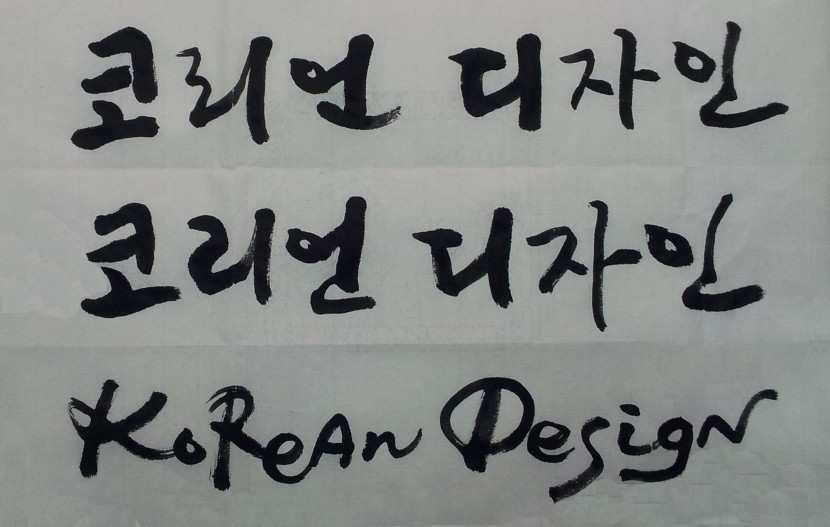 코리언 디자인
코리언 디자인
KoReAn DesigN